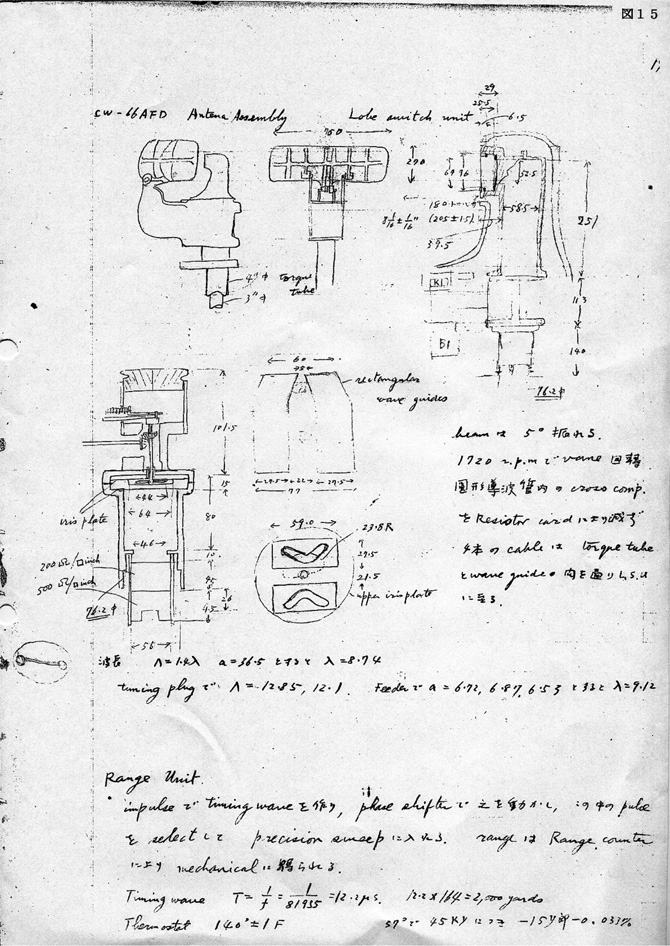 図15
CW-66AFD Antena Assembly
Lobe switch unit
29
25.5
6.5
760
270
67
76
52.5
180
8 1/16 ± 1/16"
(205±1.5)
58.5
39.5
251
4"φ
3"φ
torque
tube
K1
B1
113
140
76.2φ
60
rectangular
wave guides
101.5
15
80
44
64
46
iris plate
29.5 22 29.5
77
59.0
23.8R
29.5
21.5
upper iris plate
200Ω/□inch
500Ω/□inch
76.2φ
45
26
4.5
56
beam は 5° 振れる.
1720 r.p.m で vane 回転
円形導波管内の cross comp.
を Resistor card により減ず
4本の cable は torque tube
と wave guide の間を通り L.S.U
に至る.
波長 Λ=1.4λ a=36.5 とすると λ=8.74
tuning plug で Λ=12.85, 12.1 Feeder で a=6.72, 6.87, 6.53 とすると λ=9.12
Range Unit.
impulse で timing wave を作り, phase shifter で之を動かし, この中の pulse
を select して precision sweep に入れる. range は Range counter
により mechanical に 得られる.
Timing wave T=1/f=1/81935=12.2μs. 12.2×164=2,000 yards
Thermostat 140°±1F 57°で 45KY につき -15Y 即 -0.033%